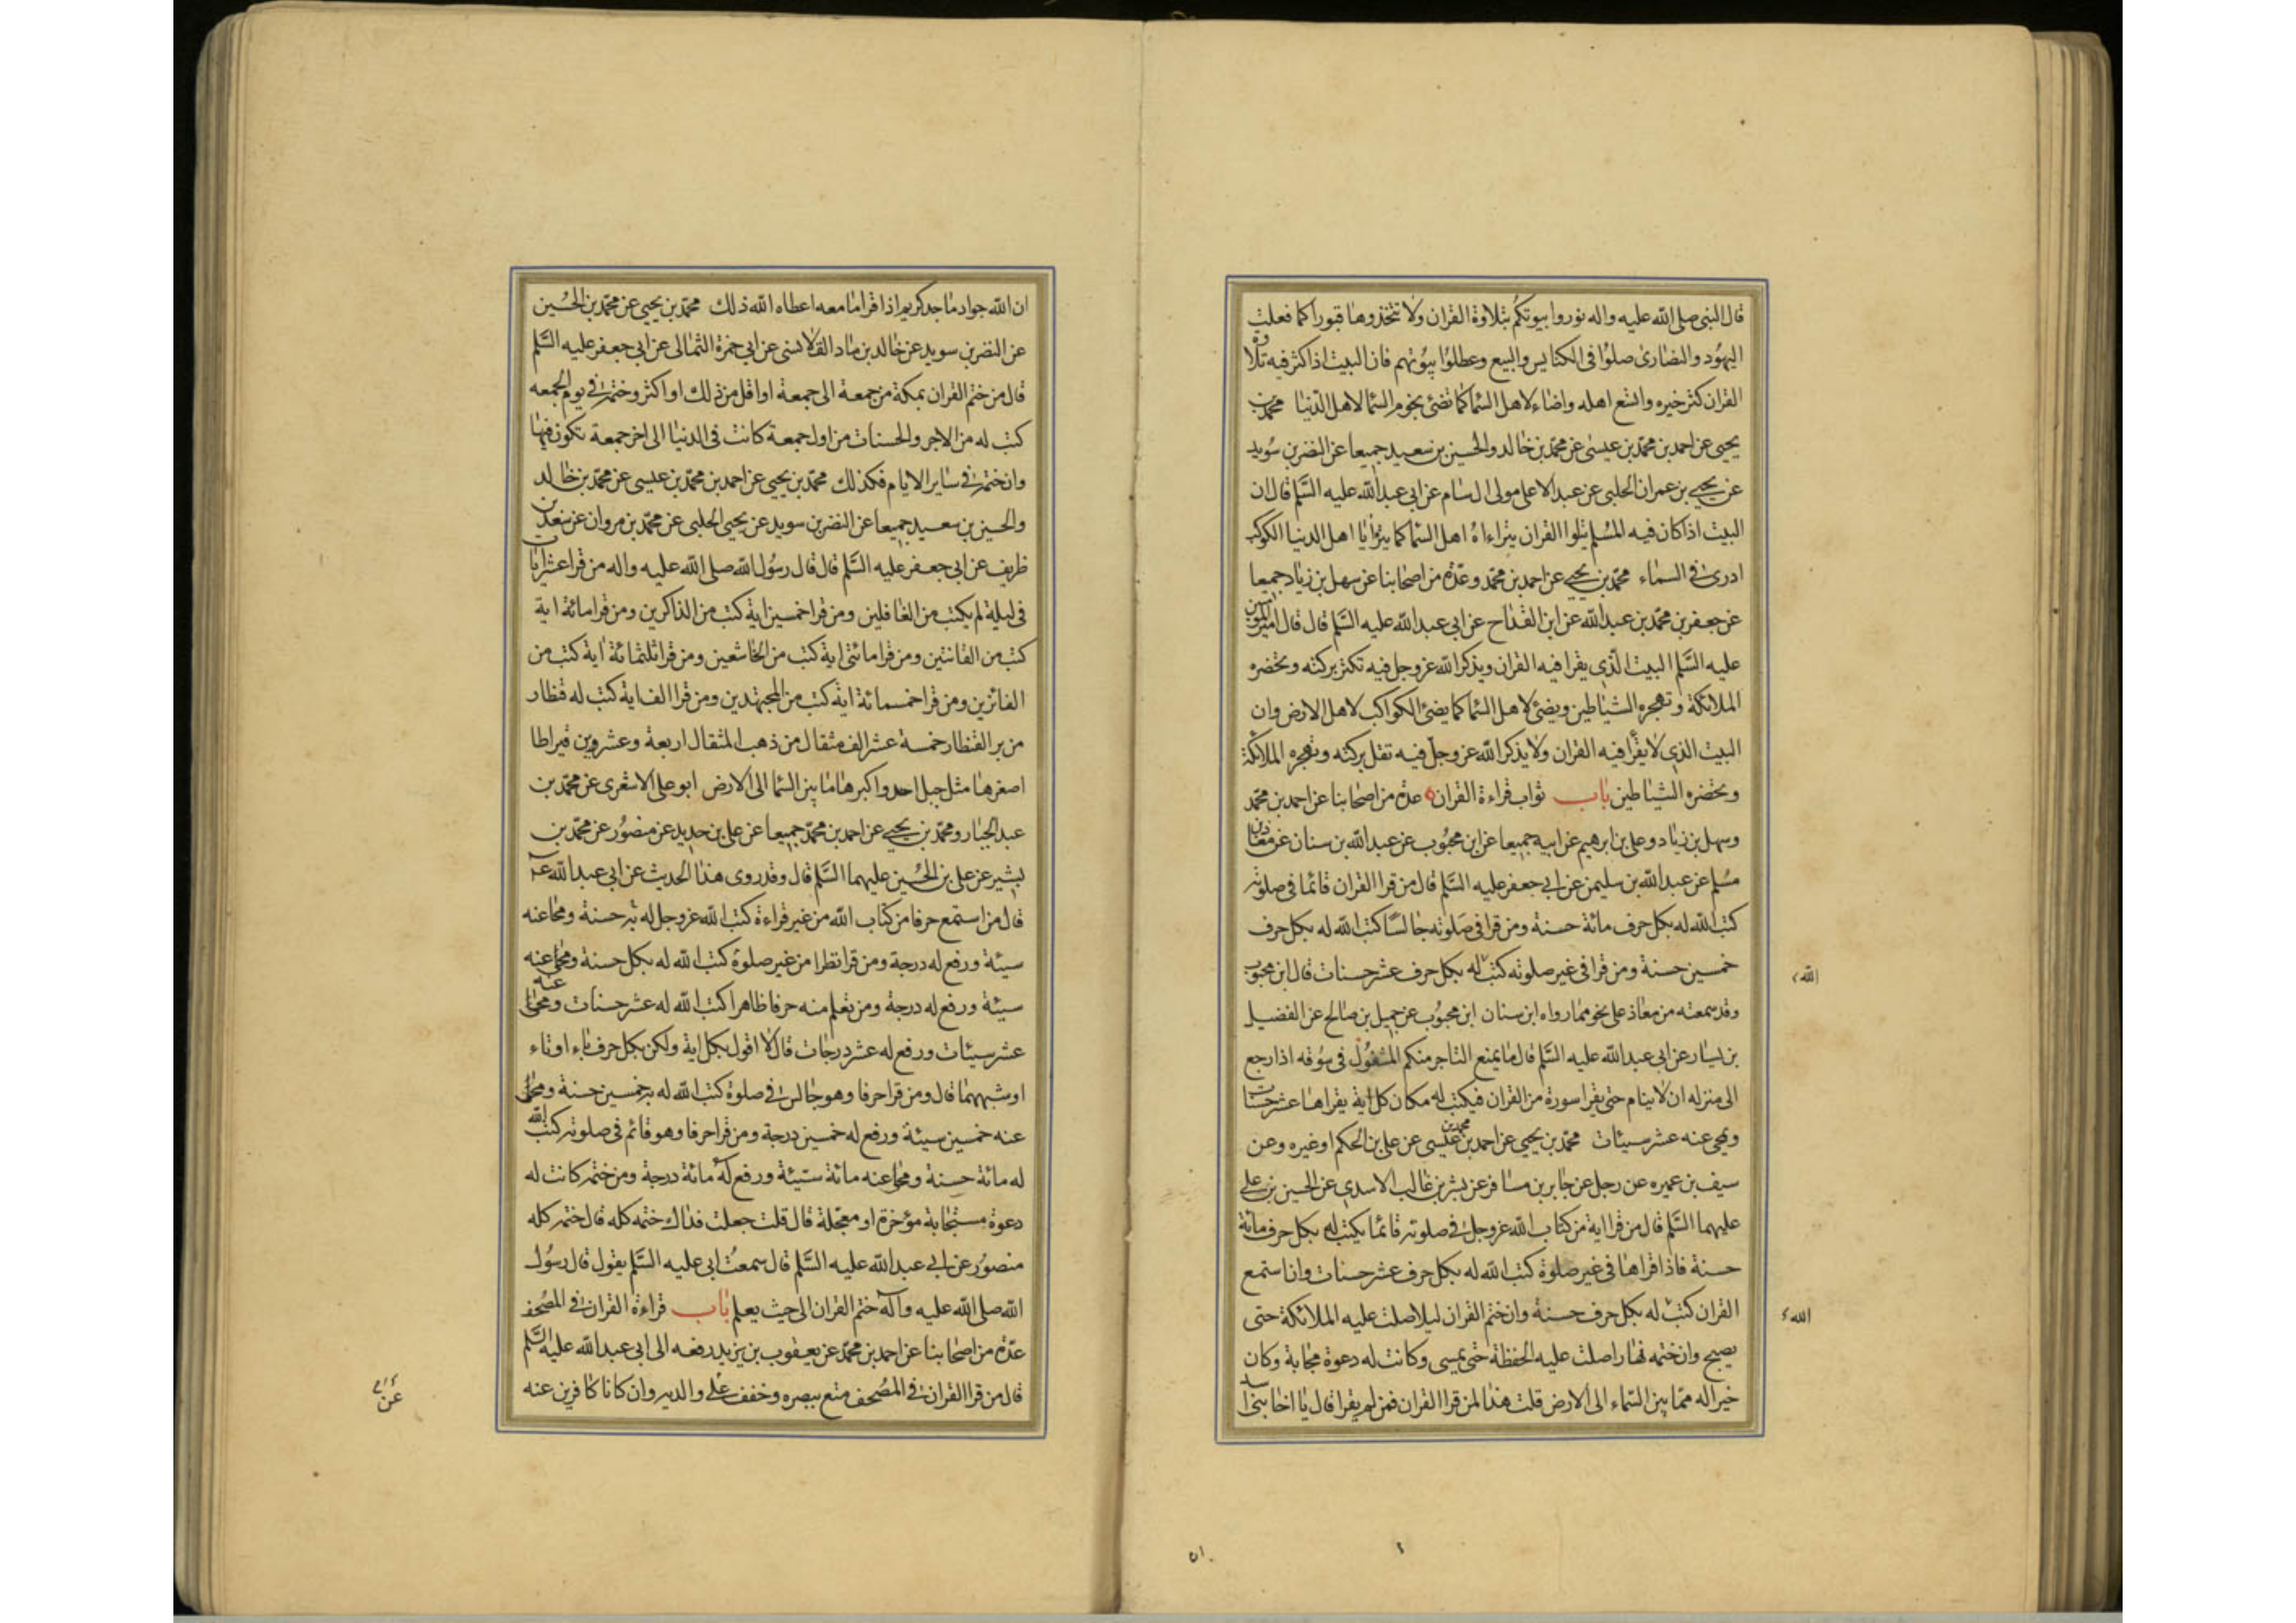 قال النبى صلى الله عليه واله نوروا بيوتكم بتلاوة القران ولا تتخذوها قبورا كما فعلت
اليهود والنصارى صلوا فى الكنايس والبيع وعطلوا بيوتهم فان البيت اذا كثر فيه تلاوة
القران كثر خيره واتسع اهله واضاء لاهل السما كما تضئ نجوم السما لاهل الدنيا محمد بن
يحيى عن احمد بن محمد بن عيسى عن محمد بن خالد والحسين بن سعيد جميعا عن النضر بن سويد
عن يحيى بن عمران الحلبى عن عبد الاعلى مولى ال سام عن ابى عبد الله عليه السلم قال ان
البيت اذا كان فيه المسلم يتلوا القران يتراءاه اهل السما كما يترايا اهل الدنيا الكوكب
الدرى فى السماء محمد بن يحيى عن احمد بن محمد وعدة من اصحابنا عن سهل بن زياد جميعا
عن جعفر بن محمد بن عبد الله عن ابن القداح عن ابى عبد الله عليه السلم قال قال امير المؤمنين
عليه السلم البيت الذى يقرا فيه القران ويذكر الله عز وجل فيه تكثر بركته وتحضره
الملائكة وتهجره الشياطين ويضئ لاهل السما كما يضئ الكواكب لاهل الارض وان
البيت الذى لا يقرا فيه القران ولا يذكر الله عز وجل فيه تقل بركته وتهجره الملائكة
وتحضره الشياطين باب ثواب قراءة القران عدة من اصحابنا عن احمد بن محمد
وسهل بن زياد وعلى بن ابرهيم عن ابيه جميعا عن ابن محبوب عن عبد الله بن سنان عن معاذ بن
مسلم عن عبد الله بن سليمن عن ابى جعفر عليه السلم قال من قرا القران قائما فى صلوته
كتب الله له بكل حرف مائة حسنة ومن قرا فى صلوته جالسا كتب الله له بكل حرف
خمسين حسنة ومن قرا فى غير صلوته كتب له بكل حرف عشر حسنات قال ابن محبوب
الله
وقد سمعته من معاذ على نحو مما رواه ابن سنان ابن محبوب عن جميل بن صالح عن الفضيل
بن يسار عن ابى عبد الله عليه السلم قال ما يمنع التاجر منكم المشغول فى سوقه اذا رجع
الى منزله ان لا ينام حتى يقرا سورة من القران فيكتب له مكان كل اية يقراها عشر حسنات
ويمحى عنه عشر سيئات محمد بن يحيى عن احمد بن محمد بن عيسى عن على بن الحكم او غيره وعن
سيف بن عميره عن رجل عن جابر بن مسافر عن بشر بن غالب الاسدى عن الحسين بن على
عليهما السلم قال من قرا اية من كتاب الله عز وجل فى صلوته قائما يكتب له بكل حرف مائة
حسنة فاذا قراها فى غير صلوة كتب الله له بكل حرف عشر حسنات وان استمع
القران كتب له بكل حرف حسنة وان ختم القران ليلا صلت عليه الملائكة حتى
الله
يصبح وان ختمه نهارا صلت عليه الحفظة حتى يمسى وكانت له دعوة مجابة وكان
خيرا له مما بين السماء الى الارض قلت هذا لمن قرا القران فمن لم يقرا قال يا اخا بنى اسد
ان الله جواد ماجد كريم اذا قرا ما معه اعطاه الله ذلك محمد بن يحيى عن محمد بن الحسين
عن النضر بن سويد عن خالد بن ماد القلانسى عن ابى حمزة الثمالى عن ابى جعفر عليه السلم
قال من ختم القران بمكة من جمعة الى جمعة او اقل من ذلك او اكثر وختمه فى يوم الجمعه
كتب له من الاجر والحسنات من اول جمعة كانت فى الدنيا الى اخر جمعة تكون فيها
وان ختمه فى ساير الايام فكذلك محمد بن يحيى عن احمد بن محمد بن عيسى عن محمد بن خالد
والحسين بن سعيد جميعا عن النضر بن سويد عن يحيى الحلبى عن محمد بن مروان عن سعد بن
ظريف عن ابى جعفر عليه السلم قال قال رسول الله صلى الله عليه واله من قرا عشر ايات
فى ليلة لم يكتب من الغافلين ومن قرا خمسين اية كتب من الذاكرين ومن قرا مائة اية
كتب من القانتين ومن قرا مائتى اية كتب من الخاشعين ومن قرا ثلثمائة اية كتب من
الفائزين ومن قرا خمسمائة اية كتب من المجتهدين ومن قرا الف اية كتب له قنطار
من بر القنطار خمسة عشر الف مثقال من ذهب المثقال اربعة وعشرون قيراطا
اصغرها مثل جبل احد واكبرها ما بين السما الى الارض ابو على الاشعرى عن محمد بن
عبد الجبار ومحمد بن يحيى عن احمد بن محمد جميعا عن على بن حديد عن منصور عن محمد بن
بشير عن على بن الحسين عليهما السلم قال وقد روى هذا الحديث عن ابى عبد الله عه
قال من استمع حرفا من كتاب الله من غير قراءة كتب الله عز وجل له به حسنة ومحا عنه
سيئة ورفع له درجة ومن قرا نظرا من غير صلوة كتب الله له بكل حسنة ومحى عنه
سيئة ورفع له درجة ومن تعلم منه حرفا ظاهرا كتب الله له عشر حسنات ومحى عنه
عشر سيئات ورفع له عشر درجات قال لا اقول بكل اية ولكن بكل حرف باء او تاء
او شبههما قال ومن قرا حرفا وهو جالس فى صلوة كتب الله له به خمسين حسنة ومحى
عنه خمسين سيئة ورفع له خمسين درجة ومن قرا حرفا وهو قائم فى صلوته كتب الله
له مائة حسنة ومحا عنه مائة سيئة ورفع له مائة درجة ومن ختمه كانت له
دعوة مستجابة مؤخرة او معجلة قال قلت جعلت فداك ختمه كله قال ختمه كله
منصور عن ابى عبد الله عليه السلم قال سمعت ابى عليه السلم يقول قال رسول
الله صلى الله عليه وآله ختم القران الى حيث يعلم باب قراءة القران فى المصحف
عدة من اصحابنا عن احمد بن محمد عن يعقوب بن يزيد رفعه الى ابى عبد الله عليه السلم
قال من قرا القران فى المصحف متع ببصره وخفف على والديه وان كانا كافرين عنه
عن